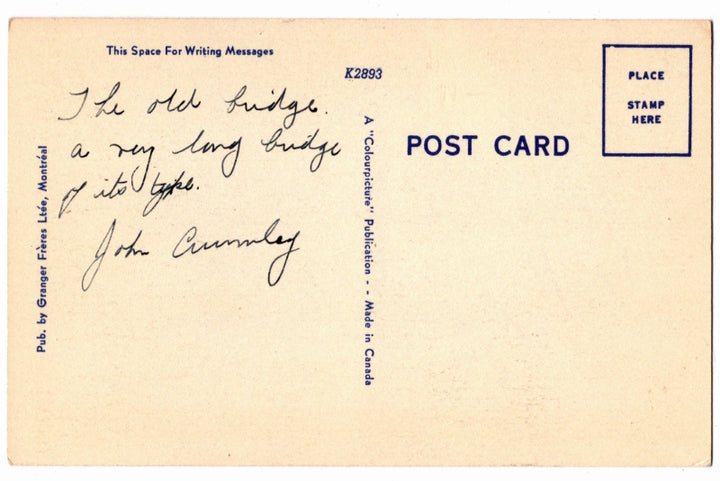 This Space For Writing Messages
K2893
The old bridge.
a very long bridge
of its type.
John Crumley
Pub. by Granger Frères Ltée, Montréal
A "Colourpicture" Publication - - Made in Canada
POST CARD
PLACE
STAMP
HERE